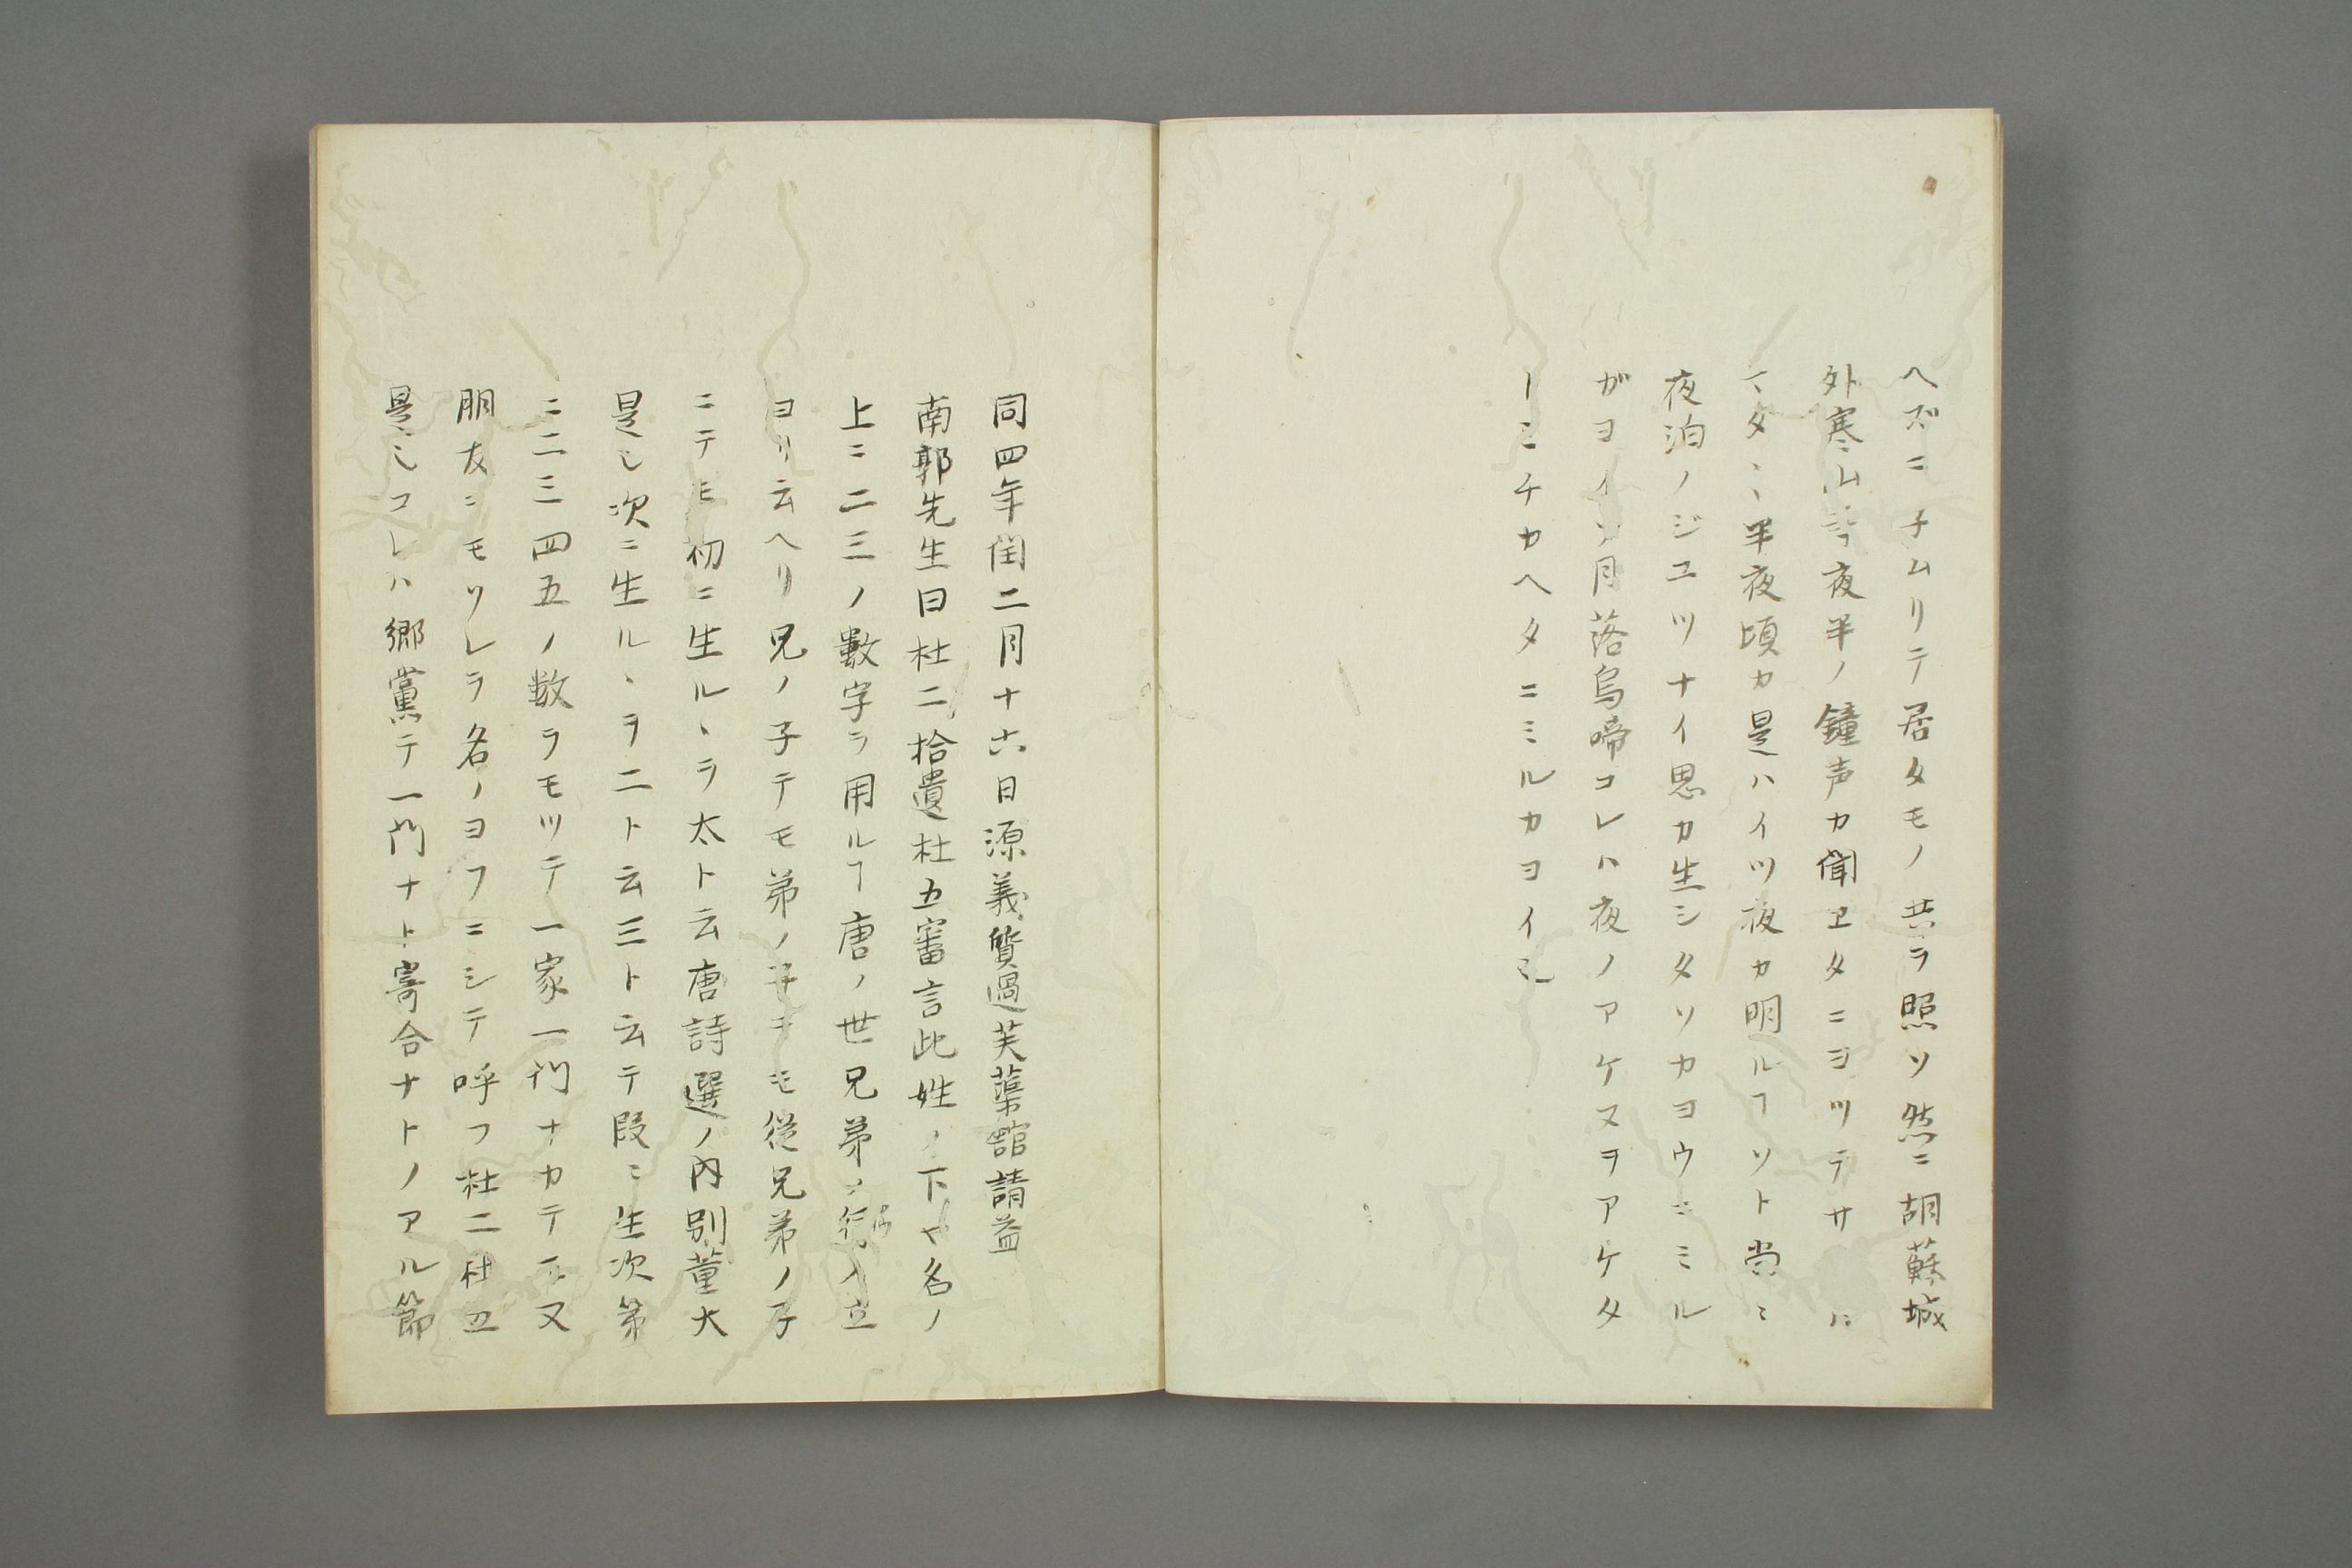 ヘズニ子ムリテ居タモノ共ヲ照ソ然ニ胡蘇城
外寒山寺夜半ノ鐘声カ聞ヱタニヨツテサハ
タヽ半夜頃カ是ハイツ夜カ明ルヿソト尚ミ
夜泊ノジユツナイ思カ生シタソカヨウニミル
ガヨイソ月落烏啼コレハ夜ノアケヌヲアケタ
ーニチカヘタニミルカヨイ也
同四年閏二月十六日源義質過芙蕖舘請益
南郭先生曰杜二拾遺杜五審言此姓ノ下ヤ名ノ
上ニ二三ノ數字ヲ用ルヿ唐ノ世兄弟ノ行ノ立
ヨリ云ヘリ兄ノ子テモ弟ノ子テモ従兄弟ノ子
ニテモ初ニ生ルヽヲ太ト云唐詩選ノ内別董大
是也次ニ生ルヽヲ二ト云三ト云テ段ミ生次第
ニ二三四五ノ数ヲモツテ一家一門ナカテ又
朋友ニモソレヲ名ノヨフニシテ呼フ杜二杜五
是也コレハ郷黨テ一門ナト寄合ナトノアル節